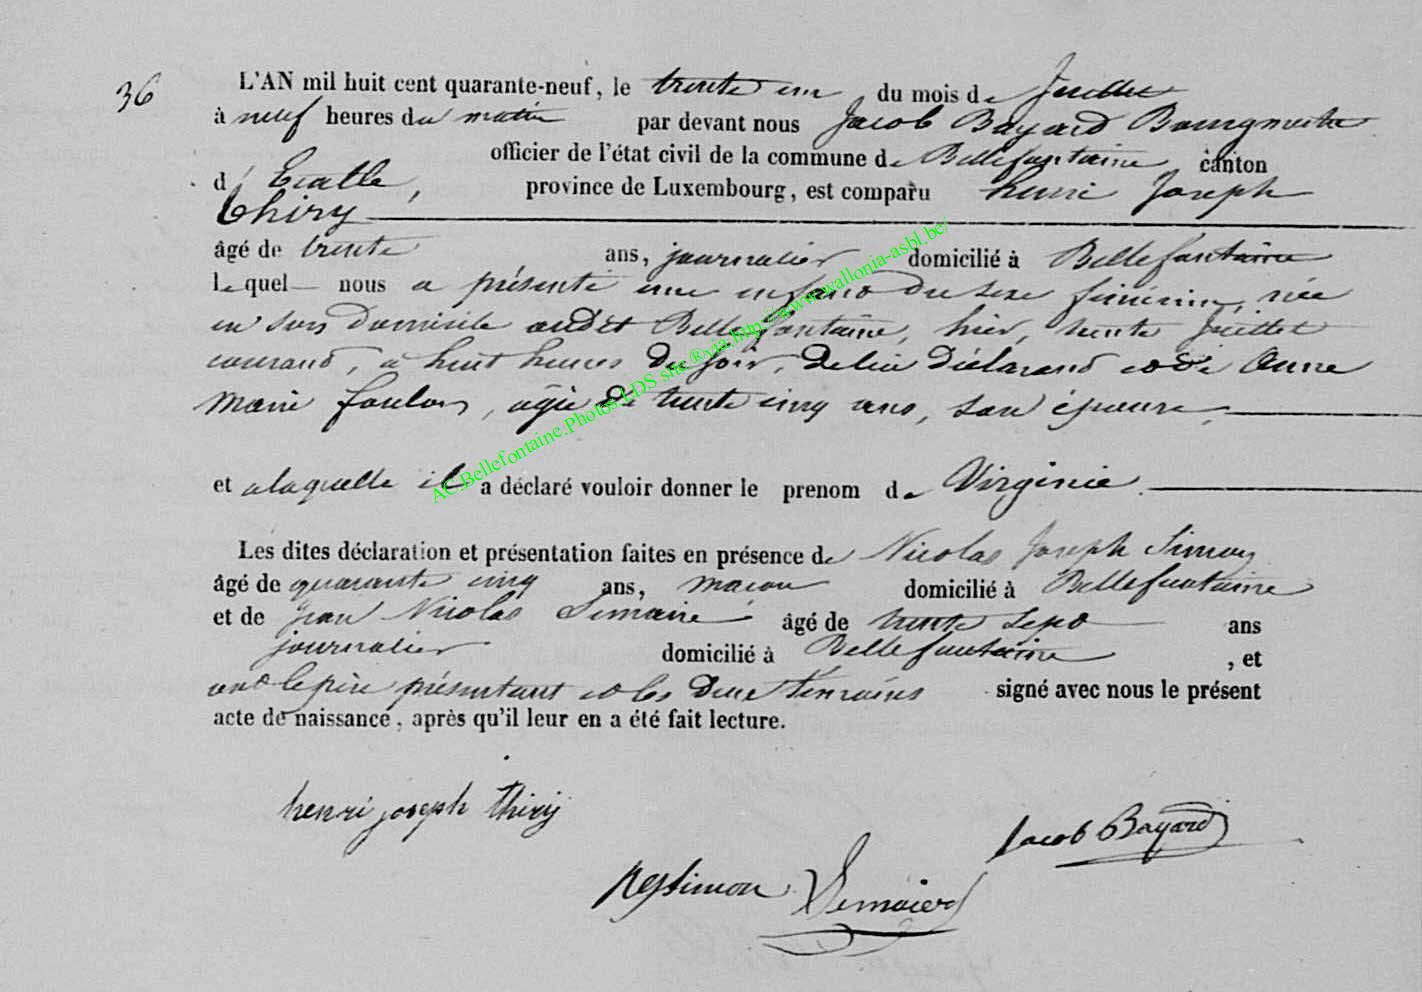 36
L'AN mil huit cent quarante-neuf, le trente un du mois de Juillet
à neuf heures du matin par devant nous Jacob Bayard Bourgmestre
officier de l'état civil de la commune de Bellefontaine, canton
d'Etalle, province de Luxembourg, est comparu henri Joseph
thiry
âgé de trente ans, journalier domicilié à Bellefontaine
lequel nous a présenté une enfant du sexe féminin, née
en son domicile audit Bellefontaine, hier, trente Juillet
courant, à huit heures du soir, de lui déclarant et de Anne
Marie foulon, agée de trente cinq ans, son épouse,
et a laquelle il a déclaré vouloir donner le prenom de Virginie
Les dites déclaration et présentation faites en présence de Nicolas Joseph Simon
âgé de quarante cinq ans, macon domicilié à Bellefontaine
et de jean Nicolas Lemaire âgé de trente sept ans
journalier domicilié à Bellefontaine, et
ont le père présentant et les deux témoins signé avec nous le présent
acte de naissance, après qu'il leur en a été fait lecture.
henri joseph thiry
Jacob Bayard
Simon Lemaire
AC.Bellefontaine.Photos LDS site ® via http://www.wallonia-asbl.be/